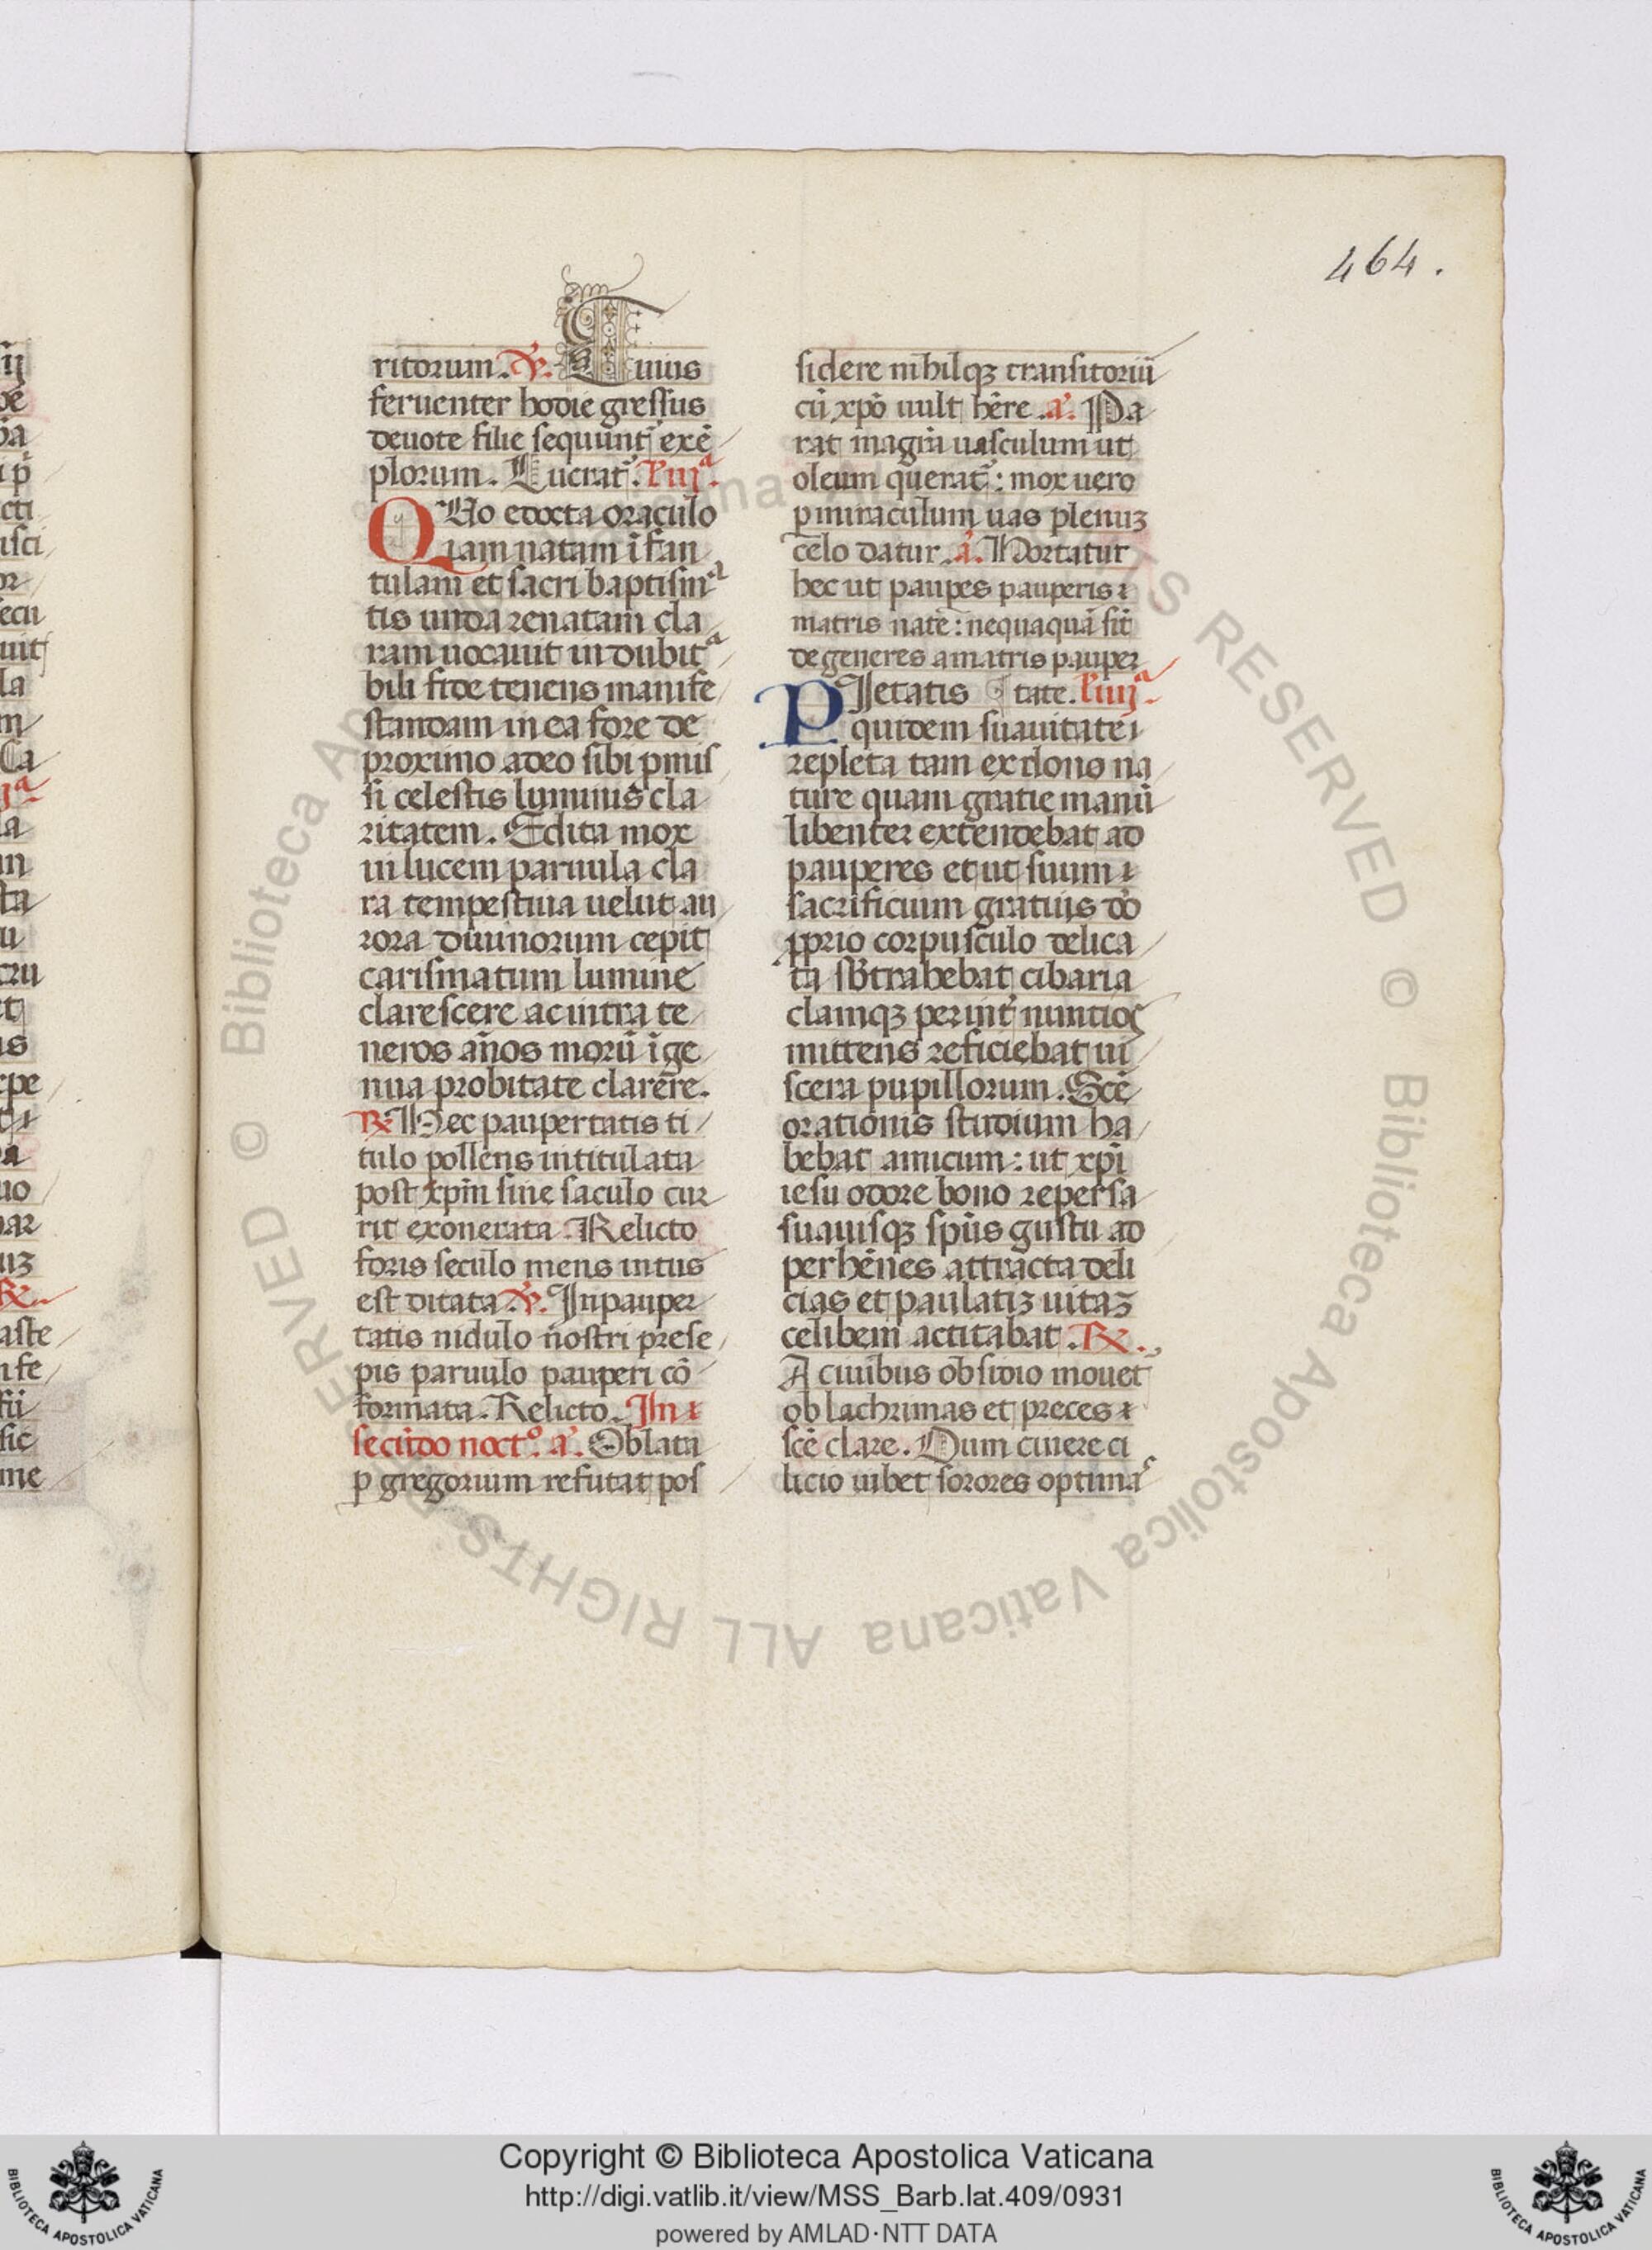 464.
ritorum. ꝟ. Cuius
feruenter hodie gressus
deuote filie sequunt᷑ exē
plorum. Lucrat᷑. l'iijª.
QUo edocta oraculo
iam natam īfan
tulam et sacri baptismª
tis unda renatam cla
ram uocauit indubitª
bili fide tenens manife
standam in ea fore de
proximo adeo sibi pmis
si celestis luminis cla
ritatem. Edita mox
in lucem paruula cla
ra tempestiua uelut au
rora diuinorum cepit
carismatum lumine
clarescere ac intra te
neros ānos morū īge
nua probitate clarēre.
℞. Hec paupertatis ti
tulo pollens intitulata
post xp̄m sine saculo cur
rit exonerata. Relicto
foris seculo mens intus
est ditata. ꝟ. In pauper
tatis nidulo nostri prese
pis paruulo pauperi cō
formata. Relicto. In
secūdo noctº. a'. Oblata
p gregorium refutat pos
sidere nihilqꝫ transitoriū
cū xp̄o uult hēre. a'. Pa
rat magr̄a uasculum ut
oleum querat᷑: mox uero
p miraculum uas plenuꝫ
celo datur. a'. Hortatur
hec ut paupes pauperis ⁊
matris nate: nequaquā sit
degeneres a matris pauper
PIetatis tate. l'iiijª.
quidem suauitate
repleta tam ex dono na
ture quam gratie manū
libenter extendebat ad
pauperes et ut suum
sacrificium gratius dō
ꝓprio corpusculo delica
ta sbtrahebat cibaria
clamqꝫ per int᷑ nuntios
mittens reficiebat ui
scera pupillorum. Scē
orationis studium ha
bebat amicum: ut xp̄i
iesu odore bono repersa
suauisqꝫ sp̄us gustu ad
perhēnes attracta deli
cias et paulatiꝫ uitaꝫ
celibem actitabat. ℞.
A ciuibus obsidio mouet᷑
ob lachrimas et preces
scē clare. Dum cinere ci
licio iubet sorores optimaˢ
© Biblioteca Apostolica Vaticana ALL RIGHTS RESERVED
Copyright © Biblioteca Apostolica Vaticana
http://digi.vatlib.it/view/MSS_Barb.lat.409/0931
powered by AMLAD·NTT DATA
BIBLIOTECA APOSTOLICA VATICANA
BIBLIOTECA APOSTOLICA VATICANA